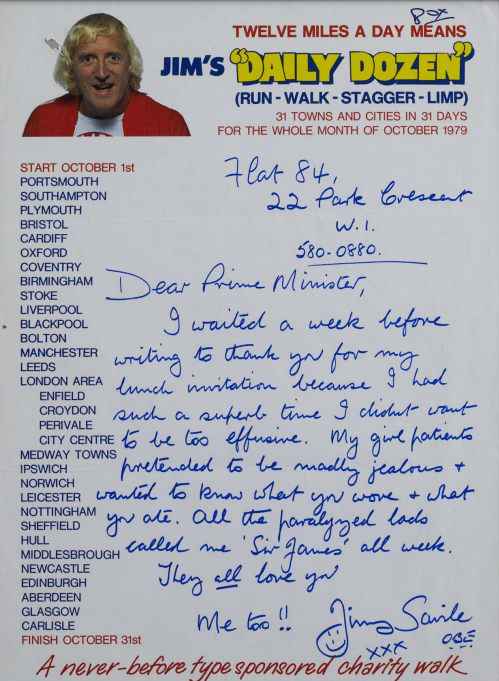 80x
TWELVE MILES A DAY MEANS
JIM'S "DAILY DOZEN"
(RUN - WALK - STAGGER - LIMP)
31 TOWNS AND CITIES IN 31 DAYS
FOR THE WHOLE MONTH OF OCTOBER 1979
START OCTOBER 1st
PORTSMOUTH
SOUTHAMPTON
PLYMOUTH
BRISTOL
CARDIFF
OXFORD
COVENTRY
BIRMINGHAM
STOKE
LIVERPOOL
BLACKPOOL
BOLTON
MANCHESTER
LEEDS
LONDON AREA
ENFIELD
CROYDON
PERIVALE
CITY CENTRE
MEDWAY TOWNS
IPSWICH
NORWICH
LEICESTER
NOTTINGHAM
SHEFFIELD
HULL
MIDDLESBROUGH
NEWCASTLE
EDINBURGH
ABERDEEN
GLASGOW
CARLISLE
FINISH OCTOBER 31st
Flat 84,
22 Park Crescent
W.1.
580-0880.
Dear Prime Minister,
I waited a week before
writing to thank you for my
lunch invitation because I had
such a superb time I didnt want
to be too effusive. My girl patients
pretended to be madly jealous +
wanted to know what you wore + what
you ate. All the paralyzed lads
called me 'Sir James' all week.
They all love you
Me too!! Jimmy Savile
OBE
xxx
A never-before type sponsored charity walk